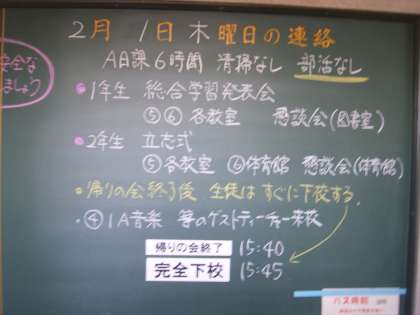 2月 1日 木曜日の連絡
A日課6時間 清掃なし 部活なし
・1年生 総合学習発表会
⑤⑥各教室 懇談会(図書室)
・2年生 立志式
⑤各教室 ⑥体育館 懇談会(体育館)
・帰りの会終了後 生徒はすぐに下校する。
・④1A音楽 箏のゲストティーチャー来校
帰りの会終了 15:40
完全下校 15:45
安全な
ましょう
バス時刻